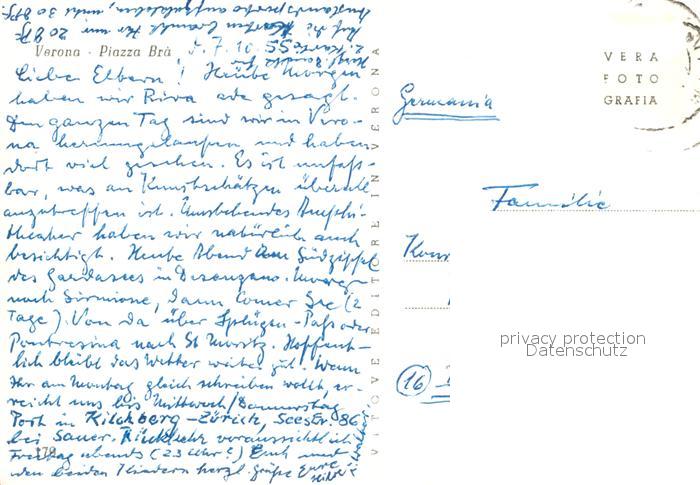 Verona - Piazza Brà
5.7.1055
Liebe Eltern! Heute Morgen
haben wir Riva ade gesagt.
Den ganzen Tag sind wir in Vero-
na herumgelaufen und haben
dort viel gesehen. Es ist unfass-
bar, was an Kunstschätzen überall
anzutreffen ist. Amphi-
theater haben wir natürlich auch
besichtigt. Heute Abend am Südzipfel
des Gardasees in Desenzano. Morgen
nach Sirmione, dann Comer See (2
Tage). Von da über Splügen-Pass oder
Pontresina nach St Moritz. Hoffent-
lich bleibt das Wetter weiter gut. Wenn
Ihr am Montag gleich schreiben wollt, er-
reicht uns bis Mittwoch/Donnerstag
Post in Kilchberg-Zürich, Seestr. 86
bei Sauer. Rückkehr voraussichtlich
Freitag abends (23 Uhr?) Euch und
den beiden Kindern herzl. Grüße Eure
179
VITO VE EDITORE IN VERONA
VERA
FOTO
GRAFIA
Germania
Familie
(16)
privacy protection
Datenschutz